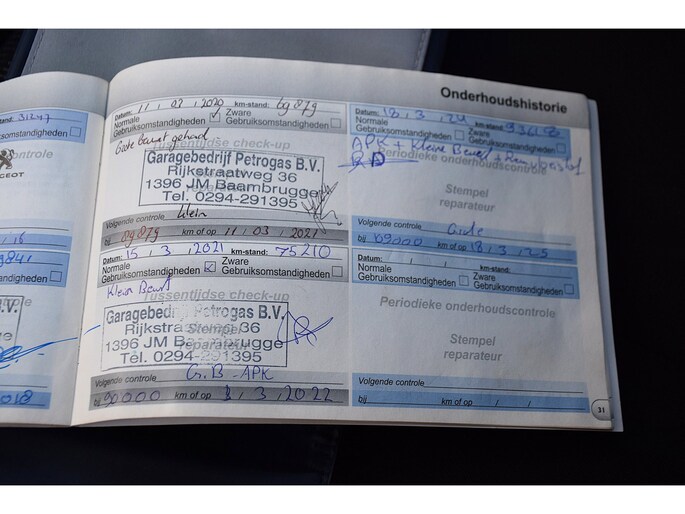 Onderhoudshistorie
stand: 31247
standigheden
ontrole
EUGEOT
Datum: 11 , 02 , 2020 km-stand: 69879
Normale Gebruiksomstandigheden Zware Gebruiksomstandigheden
Grote Beurt gehad
Tussentijdse check-up
Garagebedrijf Petrogas B.V.
Rijkstraatweg 36
1396 JM Baambrugge
Tel. 0294-291395
Volgende controle Klein
bij km of op 11 , 03 , 2021
Datum: 15 , 3 , 2021 km-stand: 75210
Normale Gebruiksomstandigheden Zware Gebruiksomstandigheden
Klein Beurt
Tussentijdse check-up
Garagebedrijf Petrogas B.V.
Rijkstraatweg 36
Stempel
1396 JM Baambrugge
reparateur
Tel. 0294-291395
Volgende controle G.B - APK
bij 90000 km of op , 3 , 2022
Datum: 18 , 3 , 24 km-stand: 93618
Normale Gebruiksomstandigheden Zware Gebruiksomstandigheden
APK + Kleine Beurt + Remvloeistof
Periodieke onderhoudscontrole
Stempel
reparateur
Volgende controle
bij 109000 km of op 18 , 3 , 25
Datum: / / km-stand:
Normale Gebruiksomstandigheden Zware Gebruiksomstandigheden
Periodieke onderhoudscontrole
Stempel
reparateur
Volgende controle
bij km of op / /
31